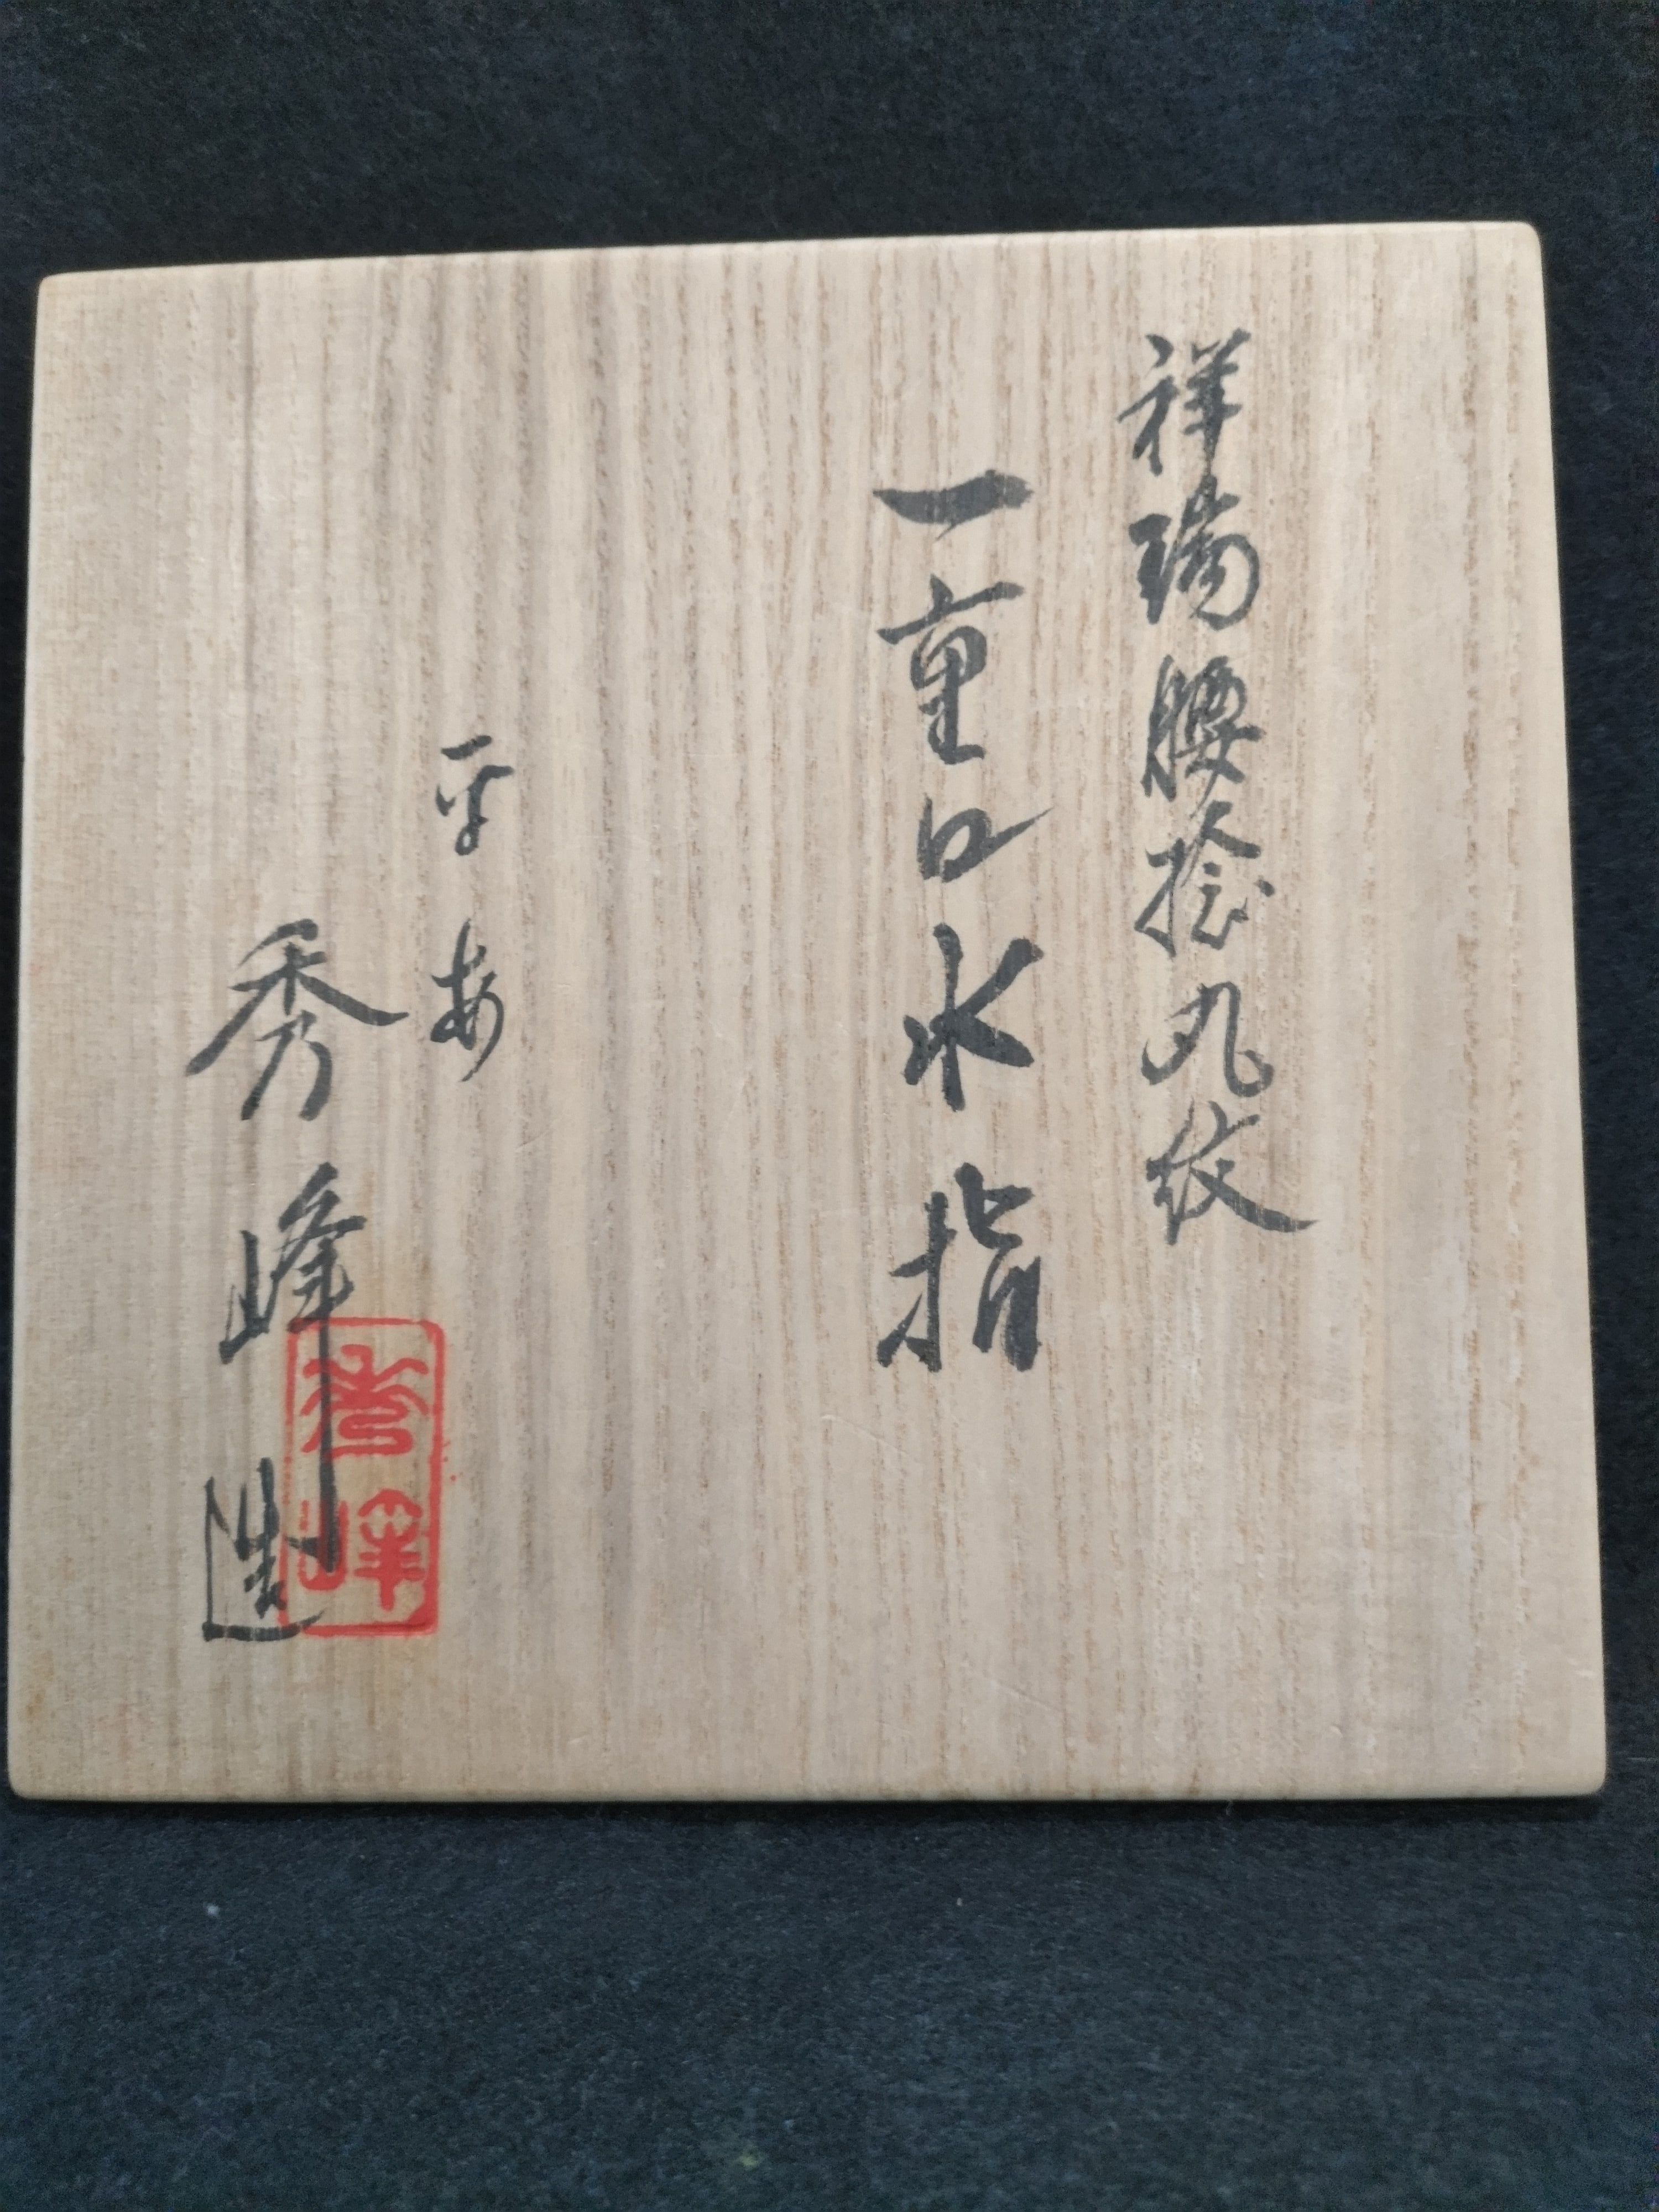 祥瑞腰捻丸紋
一重口水指
平安
秀峰造
秀峰